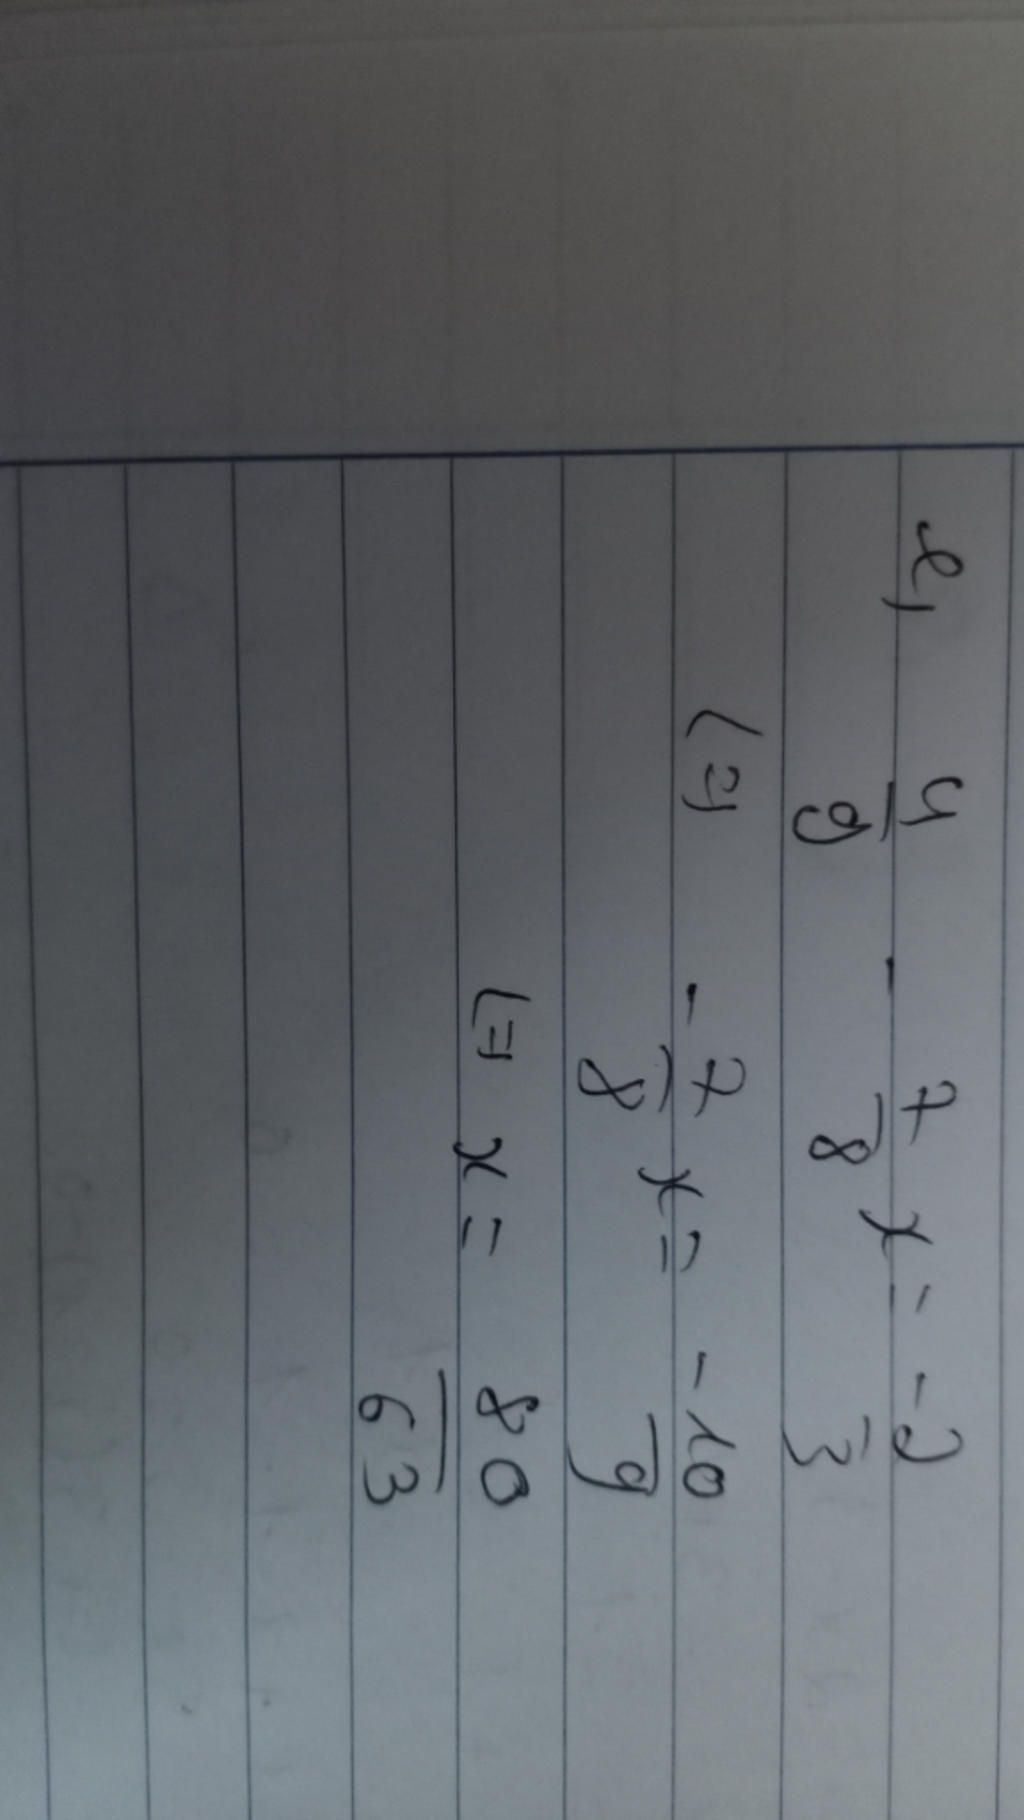 e, 4/9 - 7/8 x = -2/3
(=) -7/8 x = -10/9
(=) x = 80/63